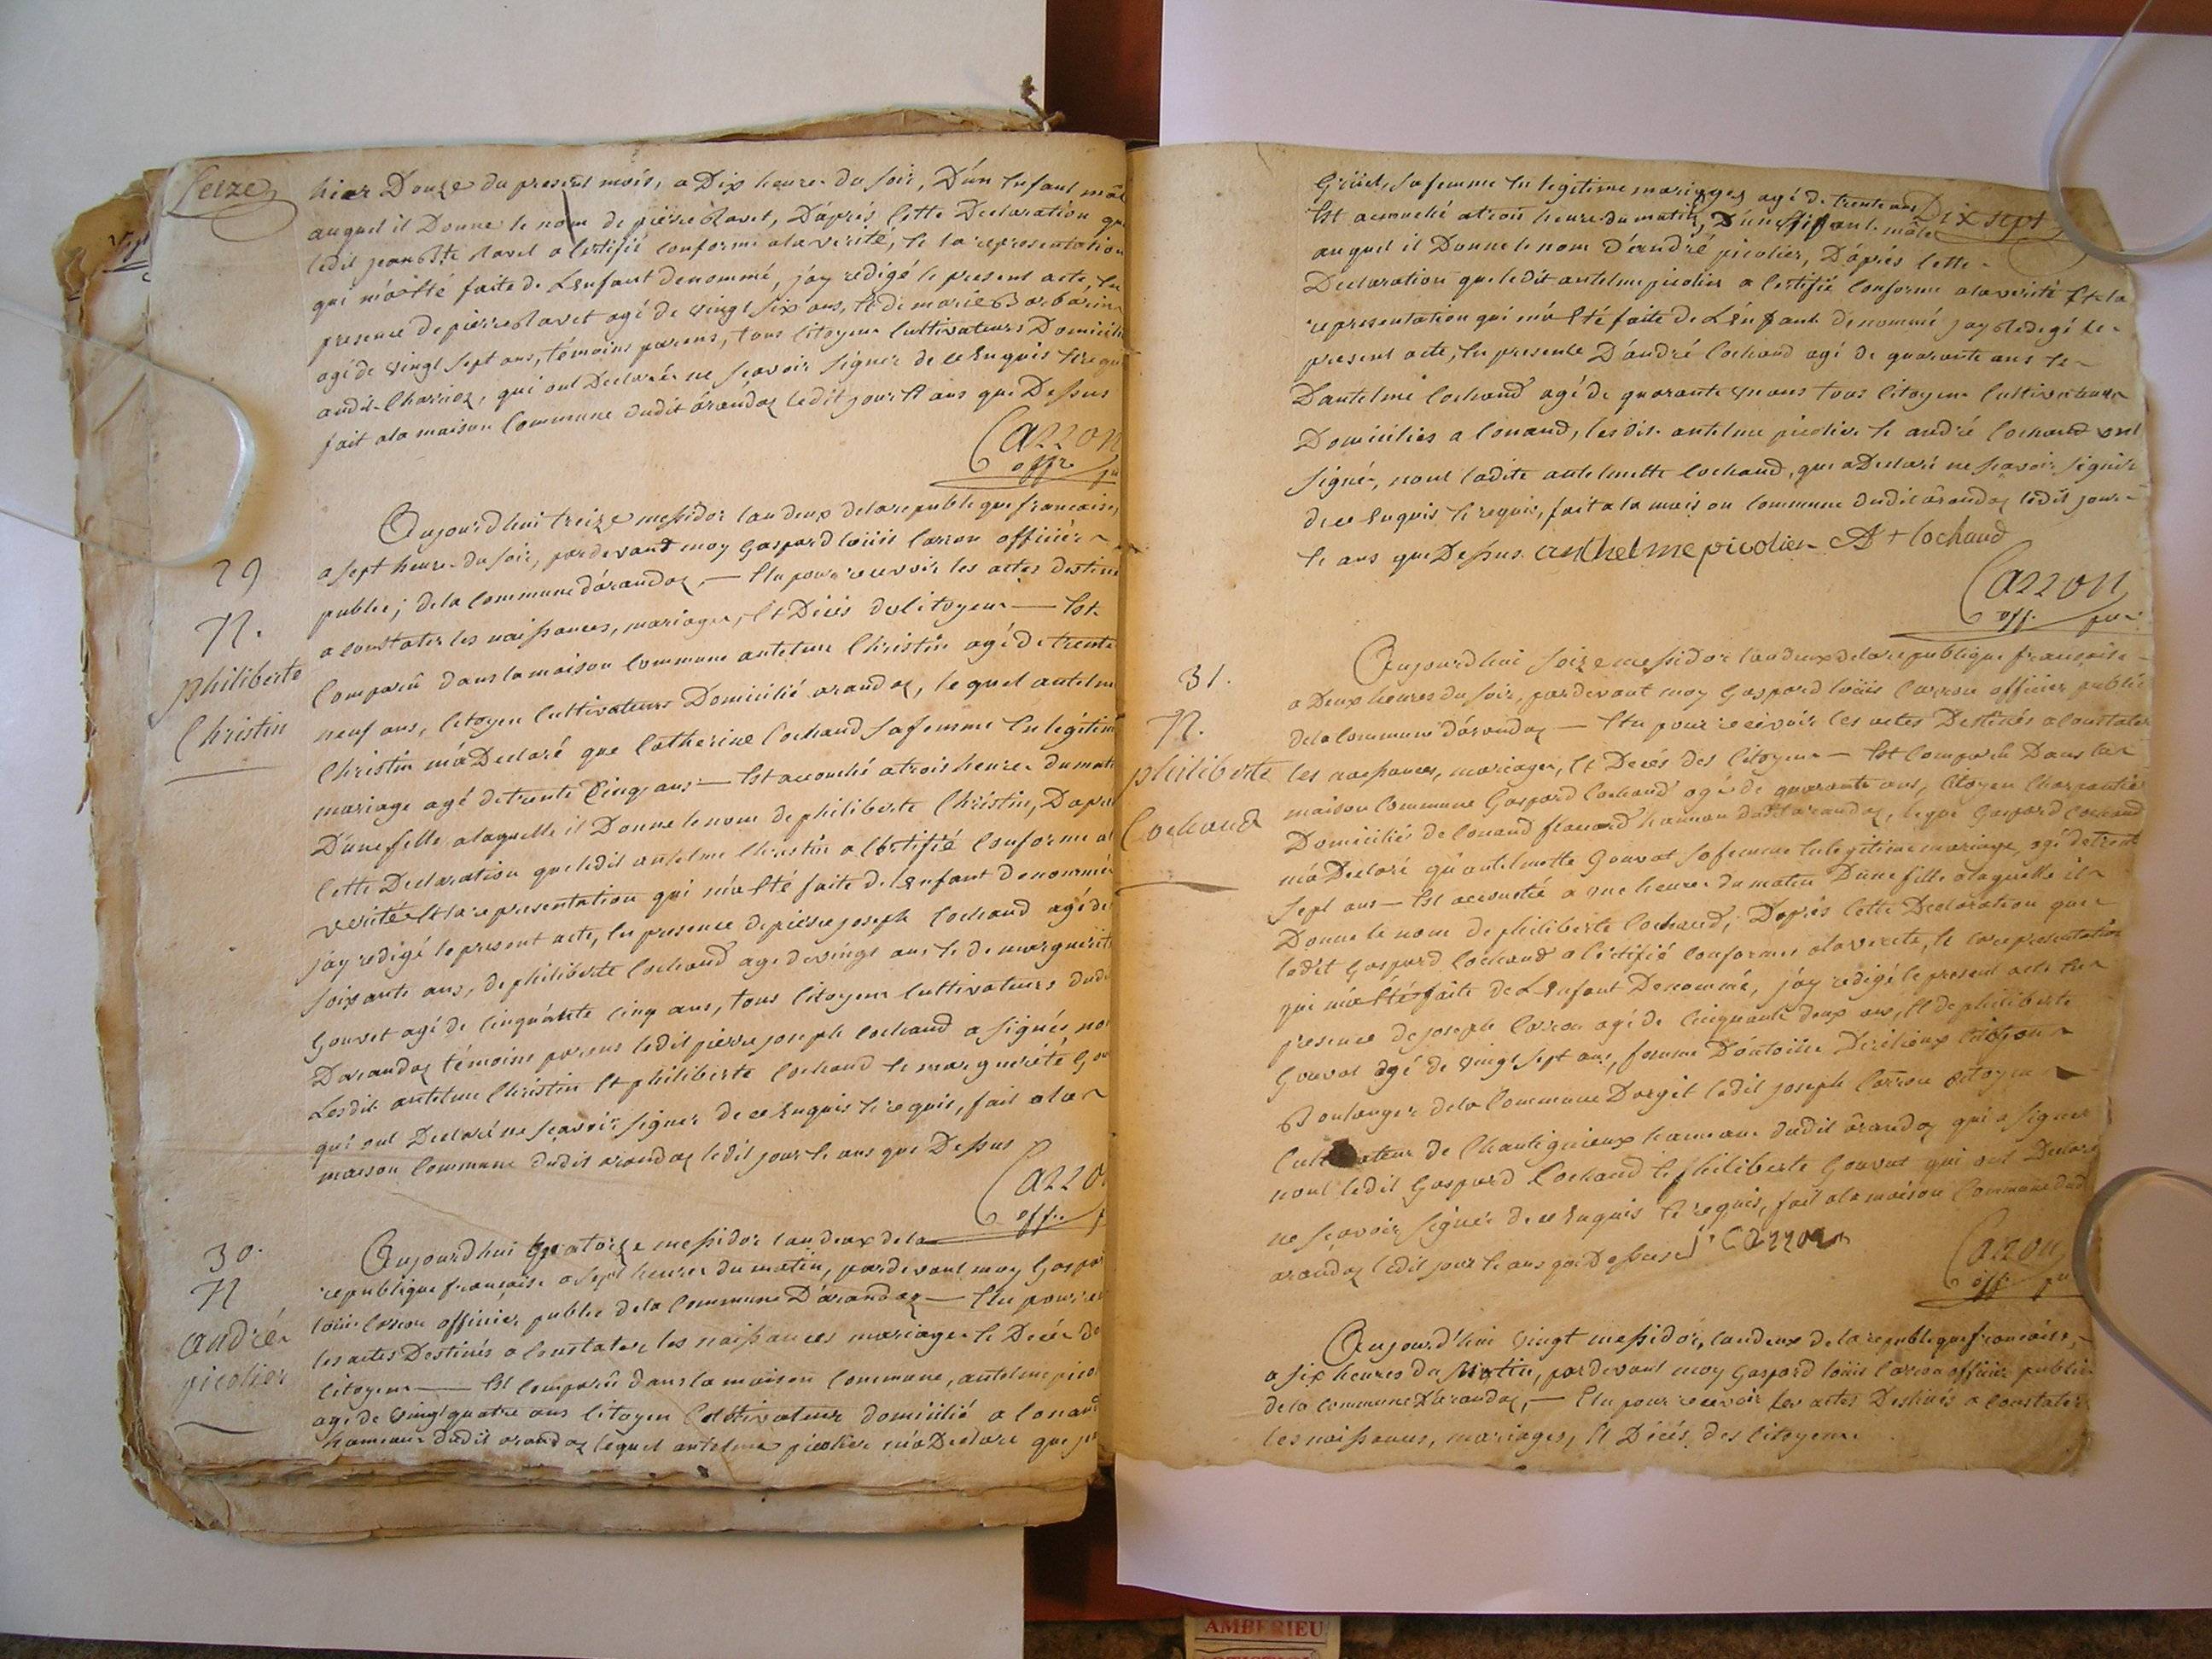 Seize
hier Douze du present mois, a Dix heures du soir, D'un Enfant mâl
auquel il Donne le nom de pierre Ravet, D'après Cette Declaration qu
ledit jean Bte Ravet a Certifié conforme ala verité, Et la representation
qui m'a Eté faite de L'Enfant denommé, j'ay redigé le present acte, En
presence de pierre Ravet agé de vingt six ans, Et de marie Barbarin
agé de vingt sept ans, témoins parens, tous Citoyens Cultivateurs Domicili
audit Charriez, qui ont Declarés ne scavoir signer de ce Enquis Et requi
fait ala maison Commune dudit arandaz ledit jour Et ans que Dessus
Carron
offr
29
N.
philiberte
Christin
Aujourdhui treize messidor lan deux dela republique francaise,
a sept heures du soir, pardevant moy Gaspard louis Carron officier
public; dela Commune d'arandaz, — Elu pour recevoir les actes destiné
a constater les naissances, mariages, Et Décés des Citoyens — Est
Comparû dans la maison Commune antelme Christin agé de trente
neuf ans, Citoyen Cultivateur Domicilié arandaz, lequel antelme
Christin m'a Declaré que Catherine Cochand sa femme En légitime
mariage agé de trente Cinq ans — Est accouché a trois heures du mati
D'une fille alaquelle il Donne le nom de philiberte Christin, D'aprè
Cette Declaration que ledit antelme Christin a Certifié Conforme al
verité Et la representation qui m'a Eté faite de L'Enfant denommé
j'ay redigé le present acte, En presence de pierre joseph Cochand agé de
soixante ans, de philiberte Cochand age de vingt ans Et de marguerite
Gouvet agé de Cinquante cinq ans, tous Citoyens Cultivateurs dudi
Darandaz témoins parens ledit pierre joseph Cochand a signés, no
Lesdits antelme Christin Et philiberte Cochand Et marguerite Gou
qui ont Declaré ne scavoir signer de ce Enquis Et requis, fait a la
maison Commune dudit arandaz ledit jour Et ans que Dessus
Carron
off.
30.
N
andré
picolier
Aujourdhui quatorze messidor lan deux dela
republique francaise a sept heures du matin, pardevant moy Gaspar
louis Carron officier public dela Commune D'arandaz — Elu pour re
les actes Destinés a Constater les naissances mariages Et Décés de
Citoyens — Est Comparû dans la maison Commune, antelme pico
agé de vingt quatre ans Citoyen Cultivateur domicilié a Conand
hameaux dudit arandaz lequel antelme picolier m'a Declare que
Dix sept
sa femme En legitime mariages agé de trente ans
Est accouché a trois heures du matin, D'un Enfant mâle
auquel il Donne le nom D'andré picolier, D'après Cette
Declaration que ledit antelme picolier a Certifié Conforme ala verité Et la
representation qui m'a Eté faite de L'Enfant denommé jay Redegé le
present acte, En presence D'andré Cochand agé de quarante ans Et
D'antelme Cochand agé de quarante ans tous Citoyens Cultivateurs
Domiciliés a Conand, lesdits antelme picolier Et andré Cochand ont
signé, nont ladite antelmette Cochand, que a Declaré ne scavoir signer
de ce Enquis Et requis, fait a la maison Commune dudit arandaz ledit jour
Et ans que Dessus. anthelme picolier A + Cochand
Carron
off. pu
31.
N.
philiberte
Cochand
Aujourdhui seize messidor lan deux dela republique francaise
a Deux heures du soir, pardevant moy Gaspard louis Carron officier public
dela Commune D'arandaz — Elu pour recevoir les actes Destinés a Constater
les naissances, mariages, Et Décés des Citoyens — Est Comparû Dans la
maison Commune Gaspard Cochand agé de quarante ans, Citoyen Charpentier
Domiciliés de Conand hameau dudit arandaz, lequel Gaspard Cochand
m'a Declaré qu'antelmette Gouvat sa femme En legitime mariage, agé de trent
sept ans — Est accouché a une heures du matin D'une fille alaquelle il
Donne le nom de philiberte Cochand; D'après Cette Declaration que
ledit Gaspard Cochand a Certifié Conformes ala verité, Et la representation
qui m'a Eté faite de L'Enfant Denommé, j'ay redigé le present acte En
presence de joseph Carron agé de Cinquante deux ans, Et de philiberte
Gouvat agé de vingt sept ans, femme D'antoine
Boulanger dela Commune Dargit ledit joseph Carron Citoyen
Cultivateur de Chantignieux hameau dudit arandaz qui a signer
nont ledit Gaspard Cochand Et philiberte Gouvat qui ont Declaré
ne scavoir signer de ce Enquis Et requis, fait ala maison Commune dud
arandaz ledit jour Et ans que Dessus J. Carron
Carron
off. pu
Aujourd'hui vingt messidor, lan deux dela republique francaise,
a six heures du Matin, pardevant moy Gaspard louis Carron officier public
dela Commune D'arandaz, — Elu pour recevoir les actes Destinés a Constater
les naissances, mariages, Et Décés des Citoyens
AMBERIEU